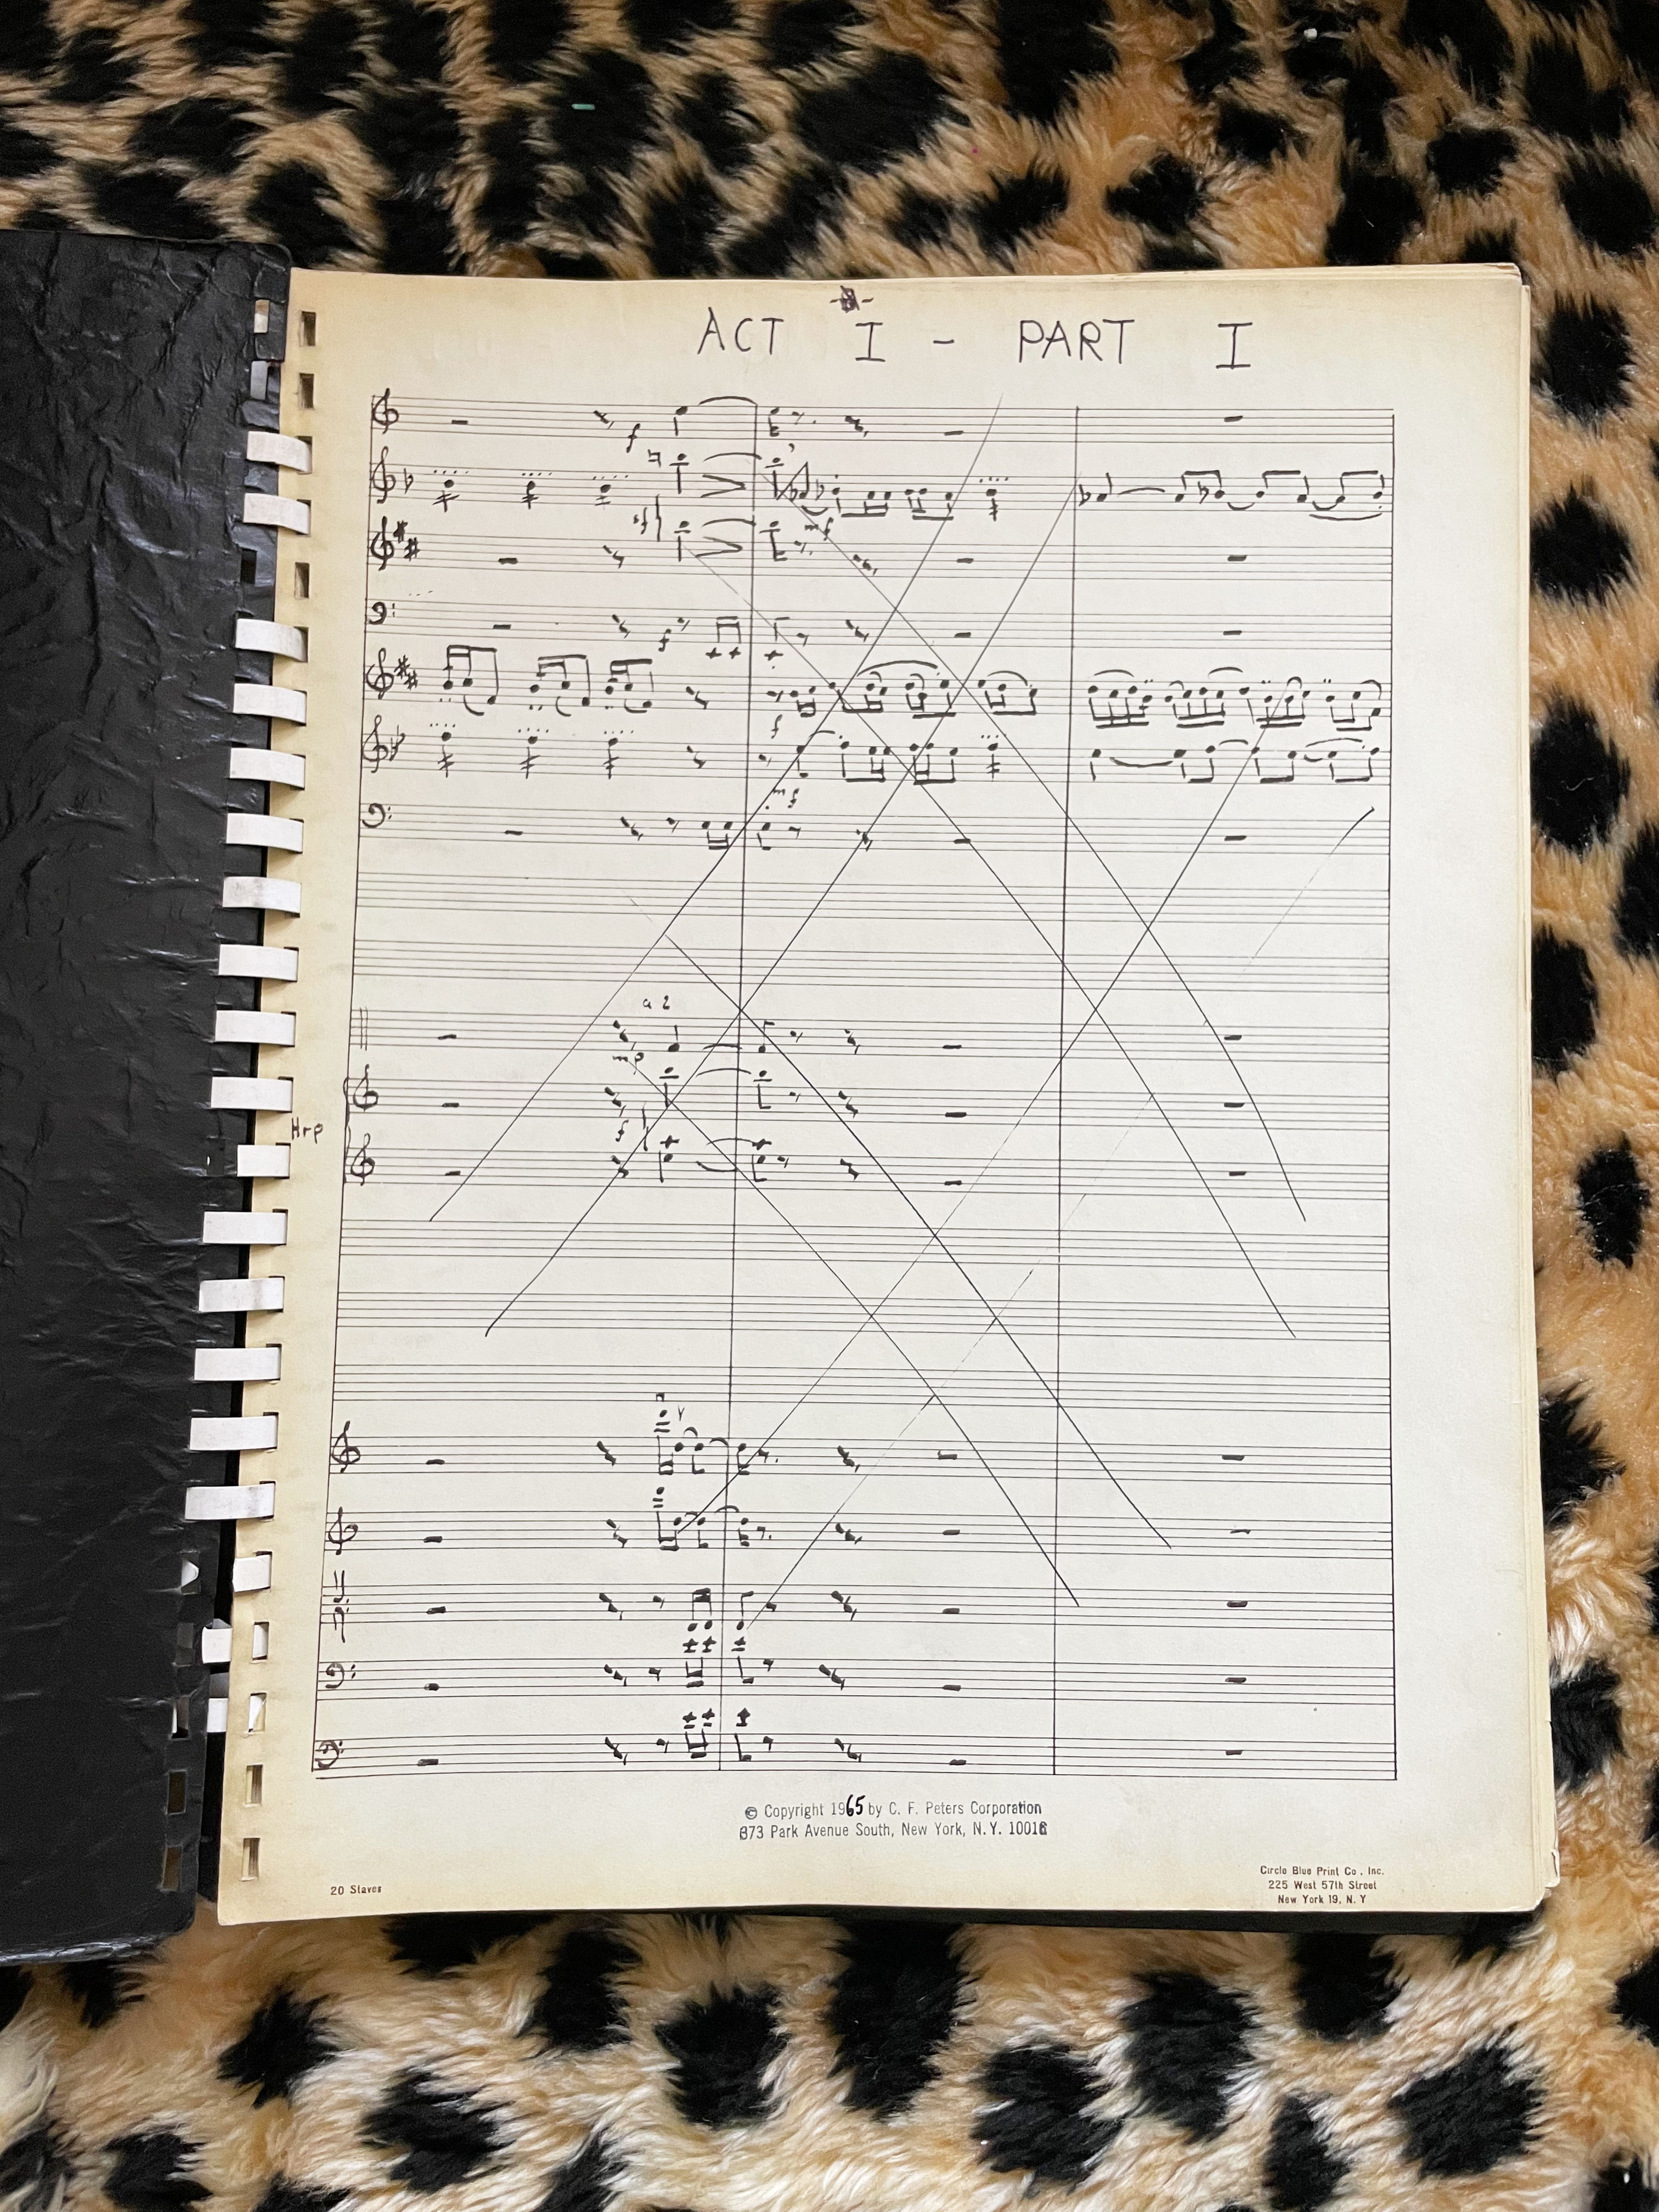 ACT I - PART I
f
f
f
mf
f
f
mf
a 2
mp
f
Hrp
© Copyright 1965 by C. F. Peters Corporation
373 Park Avenue South, New York, N.Y. 10016
20 Staves
Circle Blue Print Co., Inc.
225 West 57th Street
New York 19, N. Y